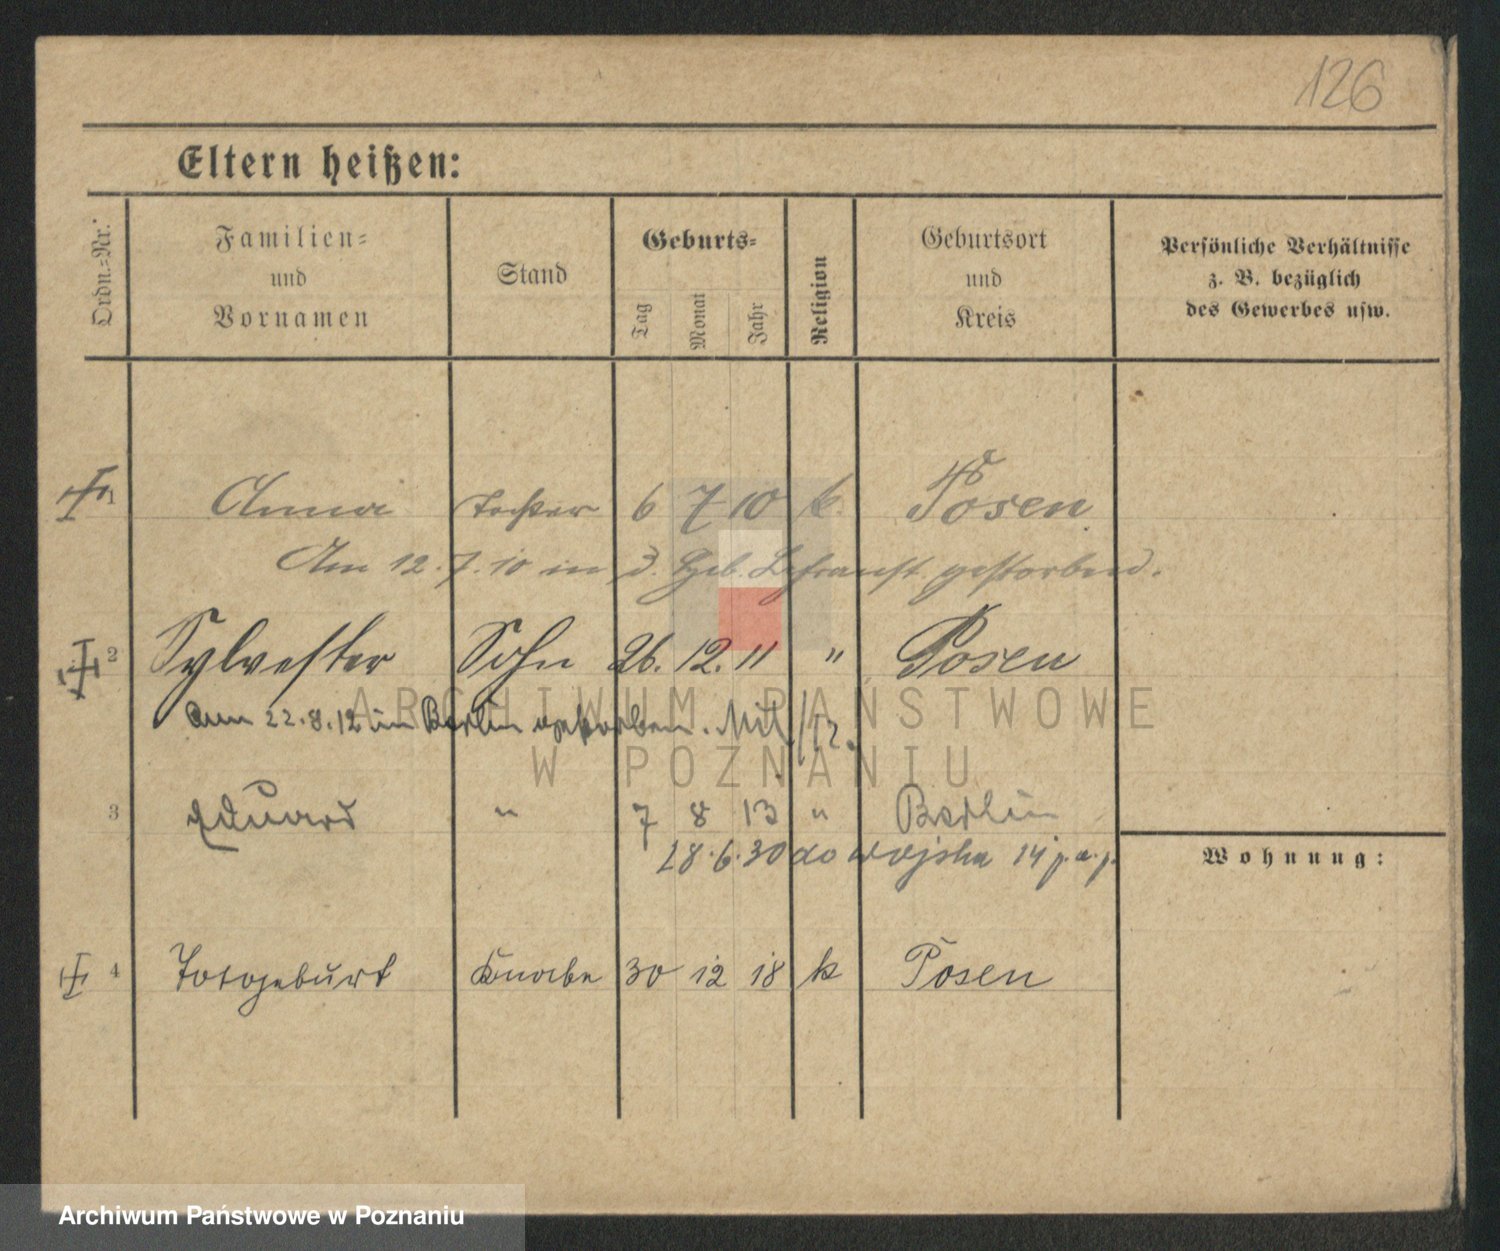 126
Eltern heißen:
Ordn.-Nr.
Familien-
und
Vornamen
Stand
Geburts-
Tag
Monat
Jahr
Religion
Geburtsort
und
Kreis
Persönliche Verhältnisse
z. B. bezüglich
des Gewerbes usw.
1 Anna Tochter 6 7 10 k. Posen
Am 12.7.10 in d. Geb. gestorben.
2 Sylvester Sohn 26. 12. 11 " Posen
Am 22.8.12 in Berlin gestorben.
3 Eduard " 7 8 13 " Berlin
28.6.30 do wojska 14 p.a.p.
Wohnung:
4 Totgeburt Knabe 30 12 18 k Posen
ARCHIWUM PAŃSTWOWE
W POZNANIU
Archiwum Państwowe w Poznaniu